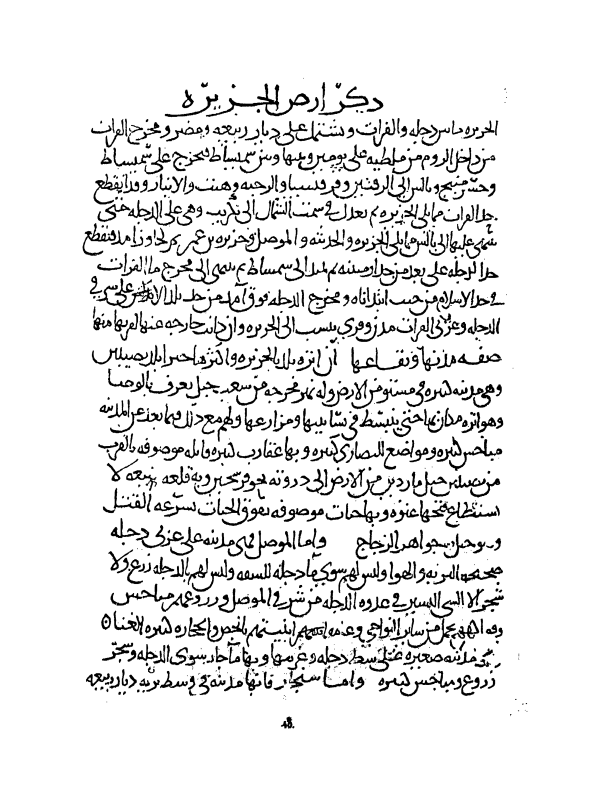 ذكر ارض الجزيره
الجزيره ما بين دجله والفرات وتشتمل على ديار ربيعه ومضر ومخرج الفرات
من داخل الروم من ملطيه على يومين وبينها وبين سميساط فيخرج على سميساط
وجسر منبج وبالس الى الرقتين وقرقيسيا والرحبه وهيت والانبار وقد انقطع
حد الفرات مما يلى الجزيره ثم يعدل فى سمت الشمال الى تكريت وهى على الدجله حتى
ينتهى عليها الى بالس مما يلى الجزيره والحديثه والموصل وجزيره بن عمر ثم يجاوز امد فينقطع
حد الدجله على بعد من حد ارمينيه ثم يمتد الى سميساط ثم ينتهى الى مخرج ما الفرات
فى حد الاسلام من حيث ابتداناه ومخرج الدجله فوق آمد من حد بلاد الارمن وعلى شرقى
الدجله وغربى الفرات مدن وقرى ينسب الى الجزيره وان كانت خارجه عنها لقربها منها
صفه مدنها وبقاعها ان انزه بلاد الجزيره واكثرها خضرا بلد نصيبين
وهى مدينه كبيره فى مستو من الارض وله نهر مخرجه من شعب جبل يعرف ببالوصا
وهو انزه مكان بها حتى ينبسط فى بساتينها ومزارعها ولهم مع ذلك فيما بعد عن المدينه
مباخس كبيره ومواضع للنصارى كبيره وبها عقارب كبيره قاتله موصوفه بالقرب
من نصيبين جبل ماردين من الارض الى ذروته نحو فرسخين وبه قلعه منيعه لا
يستطاع فتحها عنوه وبها حيات موصوفه تفوق الحيات بسرعه القتل
وبه جبل به جواهر الزجاج واما الموصل فهى مدينه على غربى دجله
صحيحه التربه والهوا وليس لهم سوى ما دجله للسقه وليس لهم بالدجله زرع ولا
شجر الا الشى اليسير فى عدوه الدجله من شرقى الموصل وزروعهم مباخس
وفواكههم تحمل من ساير النواحى وعامه ابنيتهم بالجص والحجاره كبيره الغنا
بلد مدينه صغيره على شط دجله وغربيها وبها ما جار سوى الدجله وشجر
زروع ومباخس كبيره واما سنجار فانها مدينه فى وسط بريه ديار ربيعه
48.